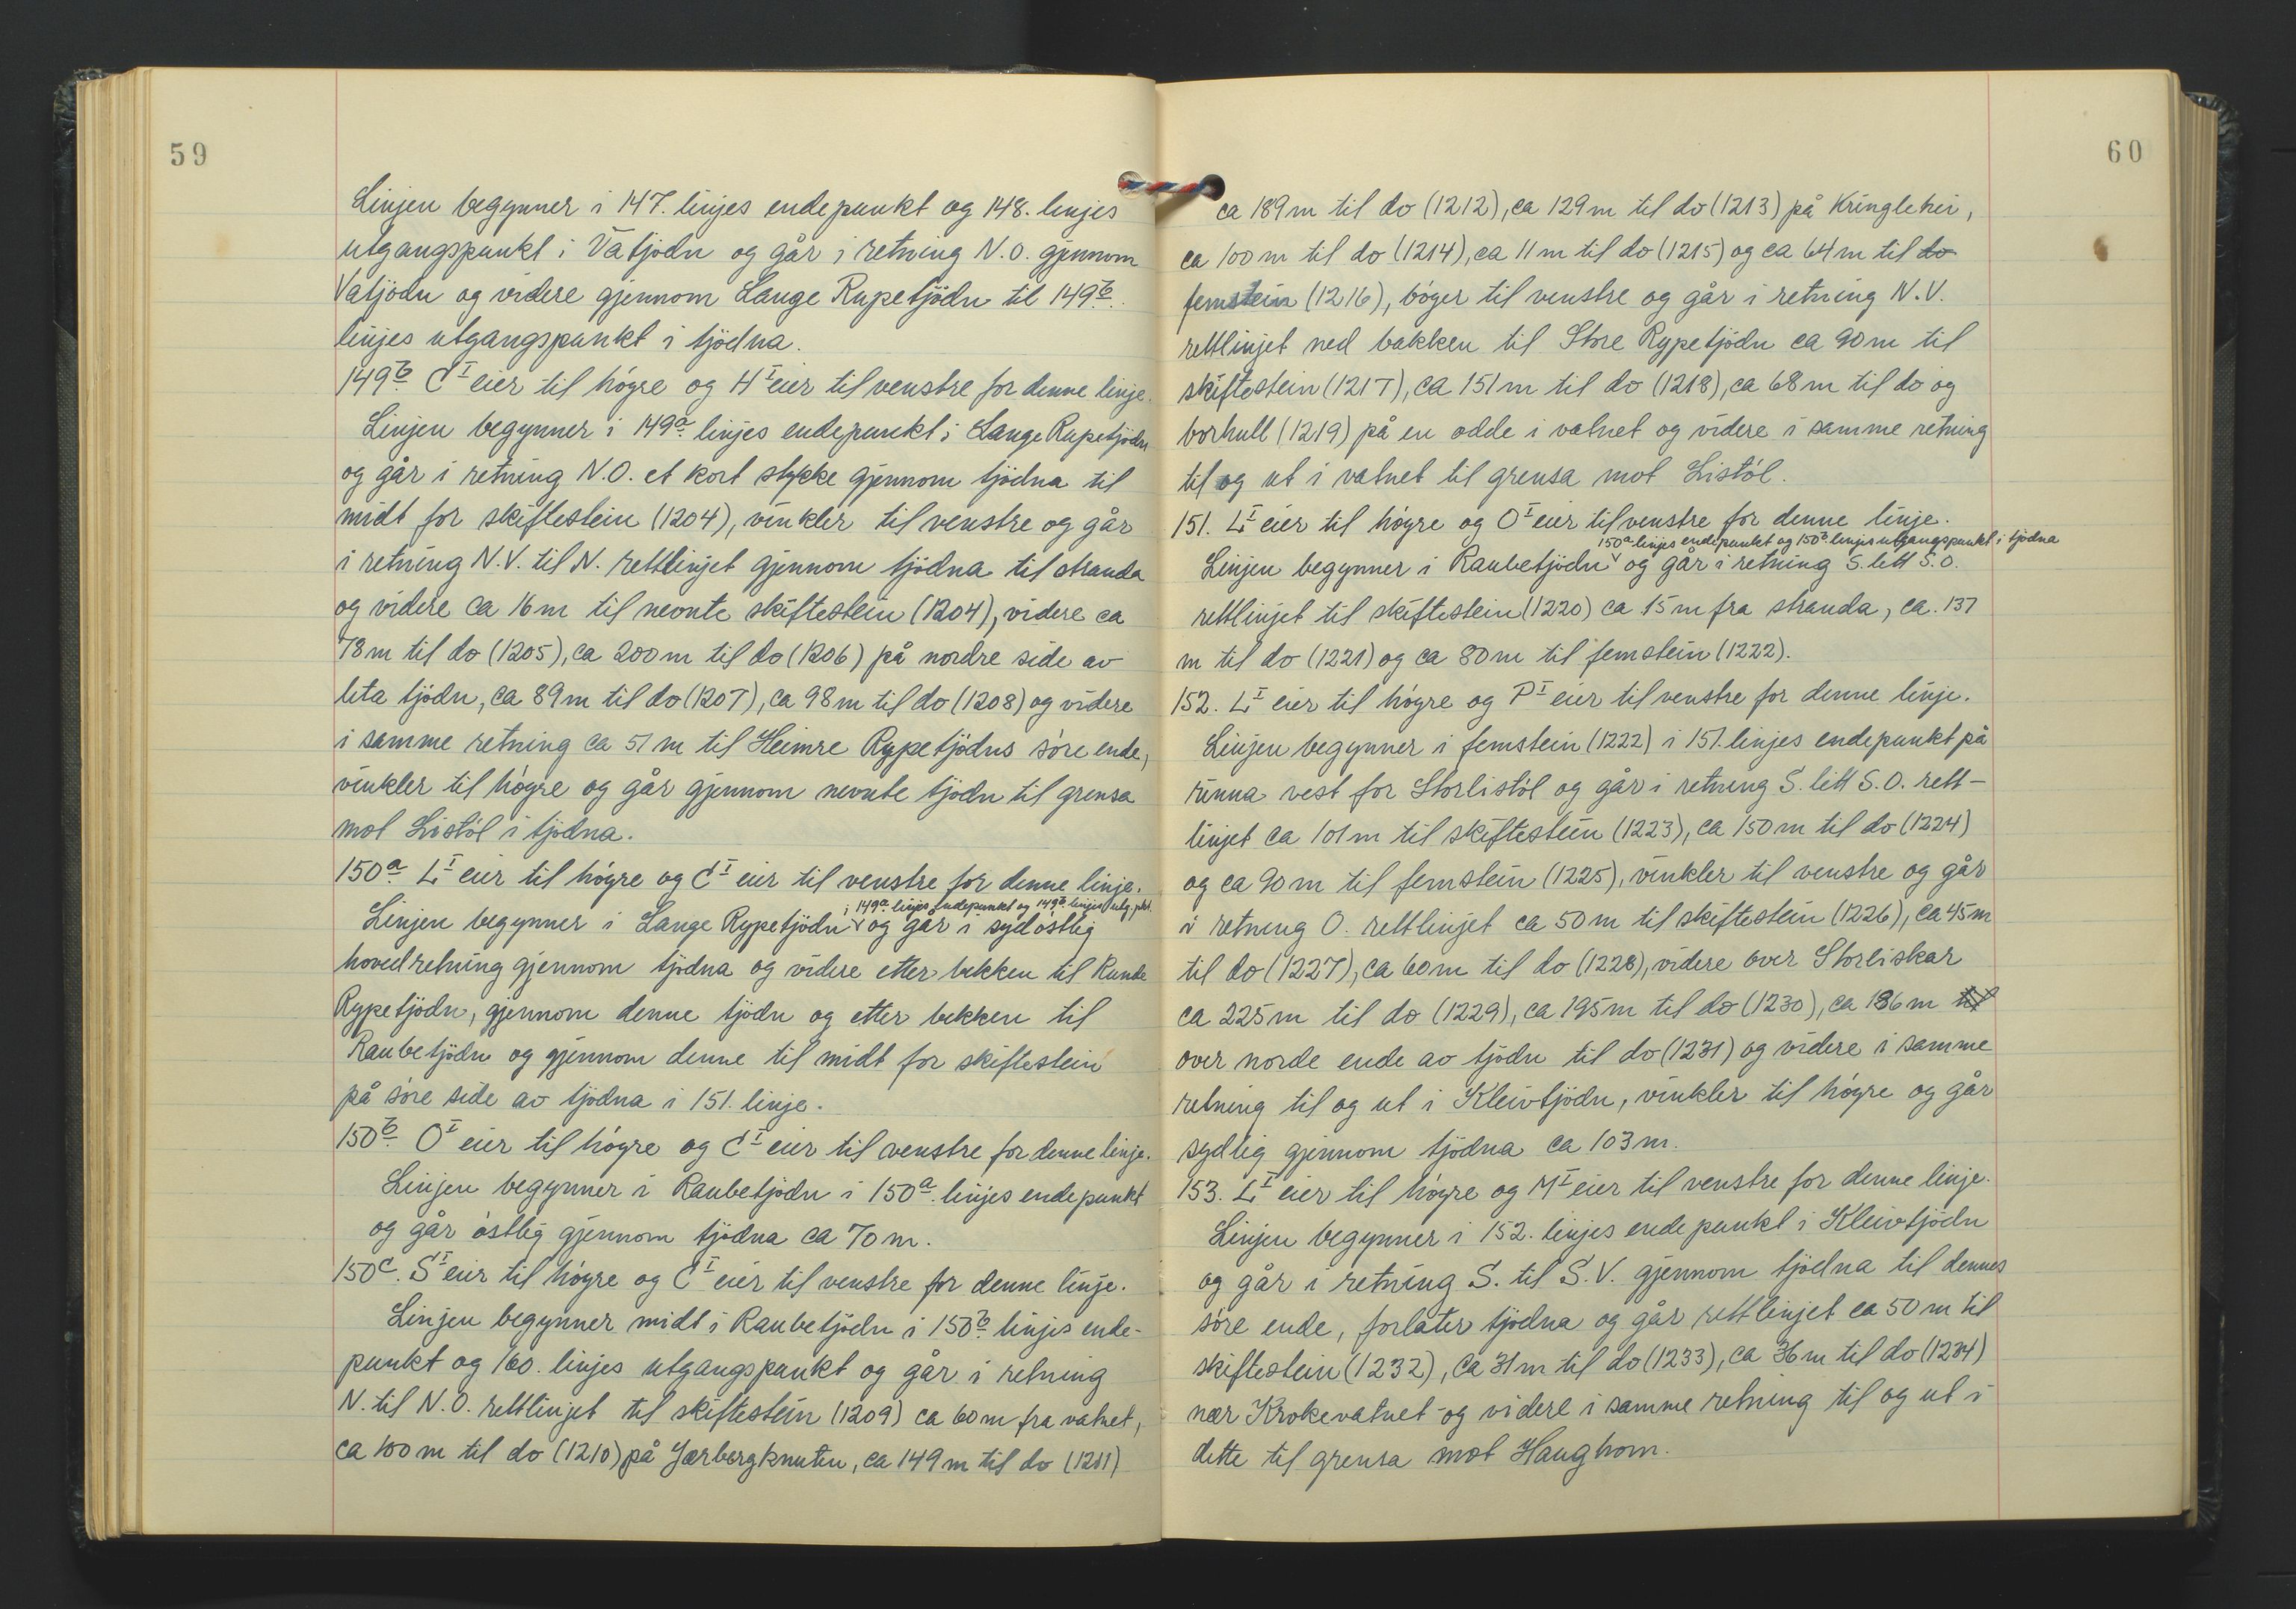 59
Linjen begynner i 147. linjes endepunkt og 148. linjes
utgangspunkt i Vatjödn og går i retning N.O. gjennom
Vatjödn og videre gjennom Lange Rupetjödn til 149b.
linjes utgangspunkt i tjödna.
149b. CI eier til högre og HI eier til venstre for denne linje.
Linjen begynner i 149a. linjes endepunkt i Lange Rupetjödn
og går i retning N.O. et kort stykke gjennom tjödna til
midt for skiftestein (1204), vinkler til venstre og går
i retning N.V. til N. rettlinjet gjennom tjödna til stranda
og videre ca 16 m til nevnte skiftestein (1204), videre ca
78 m til do (1205), ca 200 m til do (1206) på nordre side av
leta tjödn, ca 89 m til do (1207), ca 98 m til do (1208) og videre
i samme retning ca 51 m til Heimre Rypetjödns söre ende,
vinkler til högre og går gjennom nevnte tjödn til grensa
mot Listöl i tjödna.
150a. LI eier til högre og CI eier til venstre for denne linje.
i 149a. linjes endepunkt og 149b. linjes utg. pkt.
Linjen begynner i Lange Rypetjödn og går i sydöstlig
hovedretning gjennom tjödna og videre etter bekken til Runde
Rypetjödn, gjennom denne tjödn og etter bekken til
Raubetjödn og gjennom denne til midt for skiftestein
på söre side av tjödna i 151. linje.
150b. OI eier til högre og CI eier til venstre for denne linje.
Linjen begynner i Raubetjödn i 150a. linjes endepunkt
og går östlig gjennom tjödna ca 70 m.
150c. SI eier til högre og CI eier til venstre for denne linje.
Linjen begynner midt i Raubetjödn i 150b. linjes ende-
punkt og 160. linjes utgangspunkt og går i retning
N. til N.O. rettlinjet til skiftestein (1209) ca 60 m fra vatnet,
ca 100 m til do (1210) på Jærbergknuten, ca 149 m til do (1211)
60
ca 189 m til do (1212), ca 129 m til do (1213) på Kringlehei,
ca 100 m til do (1214), ca 11 m til do (1215) og ca 64 m til do
femstein (1216), böger til venstre og går i retning N.V.
rettlinjet ned bakken til Store Rypetjödn ca 90 m til
skiftestein (1217), ca 151 m til do (1218), ca 68 m til do og
borhull (1219) på en odde i vatnet og videre i samme retning
til og ut i vatnet til grensa mot Listöl.
151. LI eier til högre og OI eier til venstre for denne linje.
150a linjes endepunkt og 150b linjes utgangspunkt i tjödna
Linjen begynner i Raubetjödn og går i retning S. litt S.O.
rettlinjet til skiftestein (1220) ca 15 m fra stranda, ca. 137
m til do (1221) og ca 80 m til femstein (1222).
152. LI eier til högre og PI eier til venstre for denne linje.
Linjen begynner i femstein (1222) i 151. linjes endepunkt på
rinna vest for Storlistöl og går i retning S. litt S.O. rett-
linjet ca 101 m til skiftestein (1223), ca 150 m til do (1224)
og ca 90 m til femstein (1225), vinkler til venstre og går
i retning O. rettlinjet ca 50 m til skiftestein (1226), ca 45 m
til do (1227), ca 60 m til do (1228), videre over Storliskar
ca 225 m til do (1229), ca 195 m til do (1230), ca 186 m til
over norde ende av tjödn til do (1231) og videre i samme
retning til og ut i Kleivtjödn, vinkler til högre og går
sydlig gjennom tjödna ca 103 m.
153. LI eier til högre og MI eier til venstre for denne linje.
Linjen begynner i 152. linjes endepunkt i Kleivtjödn
og går i retning S. til S.V. gjennom tjödna til dennes
söre ende, forlater tjödna og går rettlinjet ca 50 m til
skiftestein (1232), ca 31 m til do (1233), ca 36 m til do (1234)
nær Krokevatnet og videre i samme retning til og ut i
dette til grensa mot Haughom.